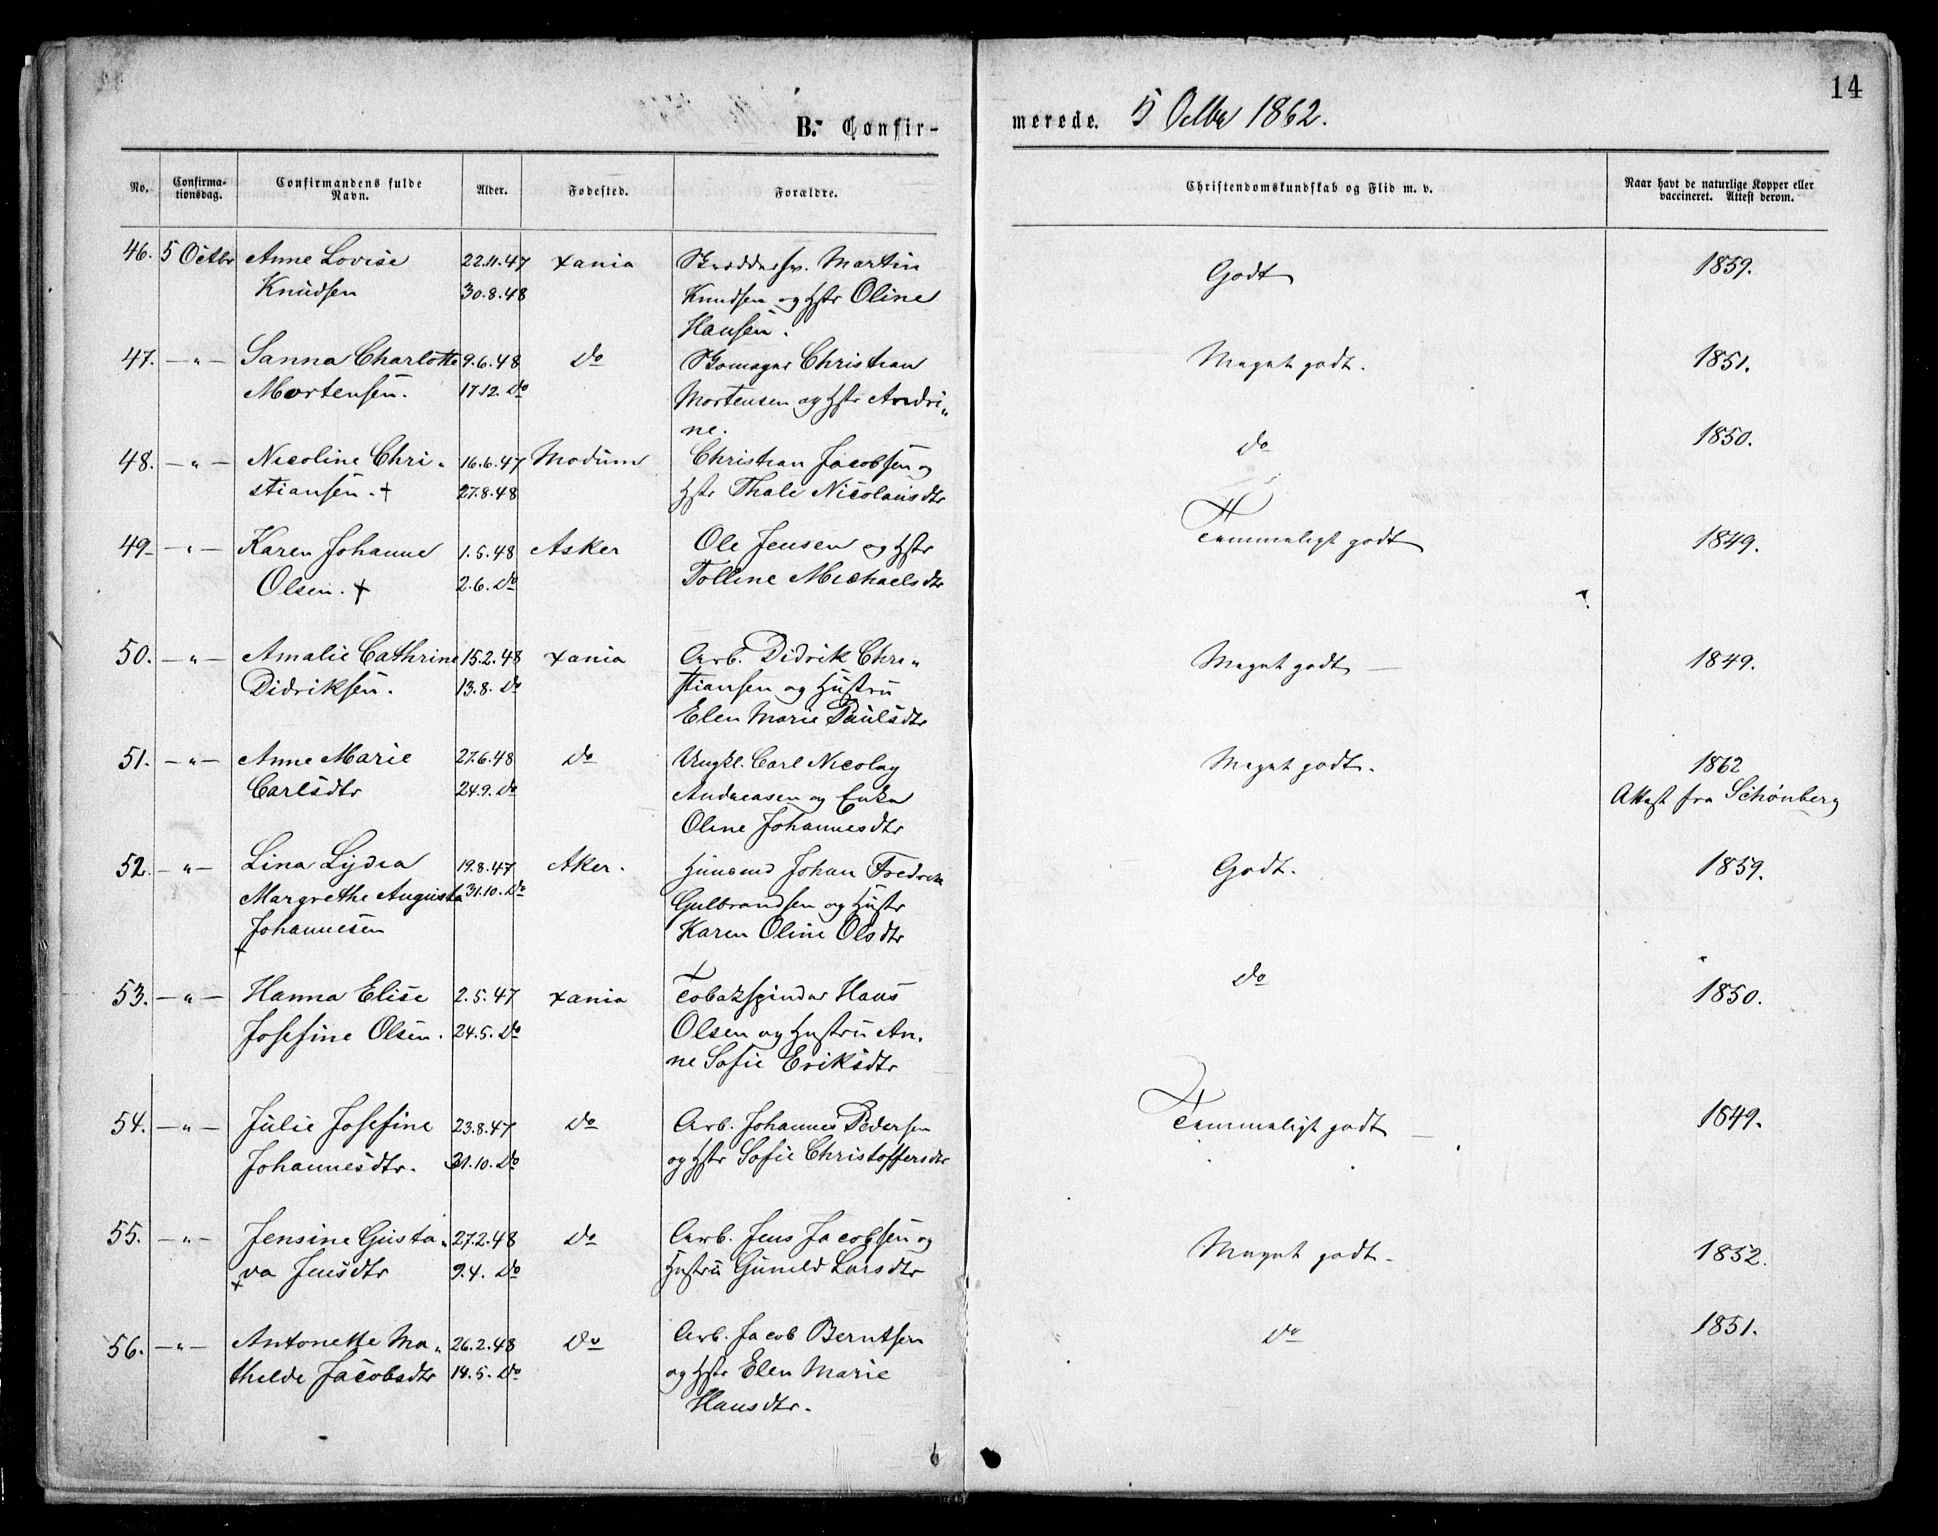 14
B. Confir-
merede. 5 Octbr 1862.
No. Confirma-tionsdag. Confirmandens fulde Navn. Alder. Fødested. Forældre. Christendomskundskab og Flid m. v. Naar havt de naturlige Kopper eller vaccineret. Attest derom.
46. 5 Octbr Anne Lovise 22.11.47 Xania Martin Godt 1859.
Knudsen 30.8.48 Knudsen og Hstr Oline
Hansen.
47. —"— Sanna Charlotte 9.6.48 Do Skomager Christian Meget godt. 1851.
Mortensen. 17.12. Do Mortensen og Hstr Andri„
ne.
48. —"— Nicoline Chri„ 16.6.47 Modum Christian Jacobsen og Do 1850.
stiansen. + 27.8.48 Hstr Thale Nicolaisdtr
49 —"— Karen Johanne 1.5.48 Asker Ole Jensen og Hstr Temmeligt godt 1849.
Olsen. + 2.6. Do Tolline Michaelsdtr
50. —"— Amalie Cathrine 15.2.48 Xania Arb. Didrik Chri„ Meget godt — 1849.
Didriksen. 13.8. Do stiansen og Hustru
Elen Marie Paulsdtr
51. —"— Anne Marie 27.6.48 Do Ungkl. Carl Nicolay Meget godt. 1862
Carlsdtr 24.9. Do Andreasen og Enke Attest fra Schønberg
Oline Johannesdtr
52. —"— Lina Lydia 19.8.47 Aker. Huusmd Johan Fredrik Godt. 1859.
Margrethe Augusta 31.10. Do Gulbrandsen og Hustr
+ Johannesen Karen Oline Olsdtr
53. —"— Hanna Elise 2.5.47 Xania Tobakspinder Hans Do 1850.
Josefine Olsen. 24.5. Do Olsen og Hustru An„
ne Sofie Eriksdtr
54. —"— Julie Josefine 23.8.47 Do Arb. Johannes Pedersen Temmeligt godt — 1849.
Johannesdtr. 31.10. Do og Hstr Sofie Christoffersdtr
55. —"— Jensine Gusta„ 27.2.48 Do Arb. Jens Jacobsen og Meget godt. 1852.
+ va Jensdtr 9.4. Do Hustru Gunild Larsdtr
56. —"— Antonette Ma„ 26.2.48 Do Arb. Jacob Berntsen Do 1851.
thilde Jacobsdtr 14.5. Do og Hstr Elen Marie
Hansdtr.
6